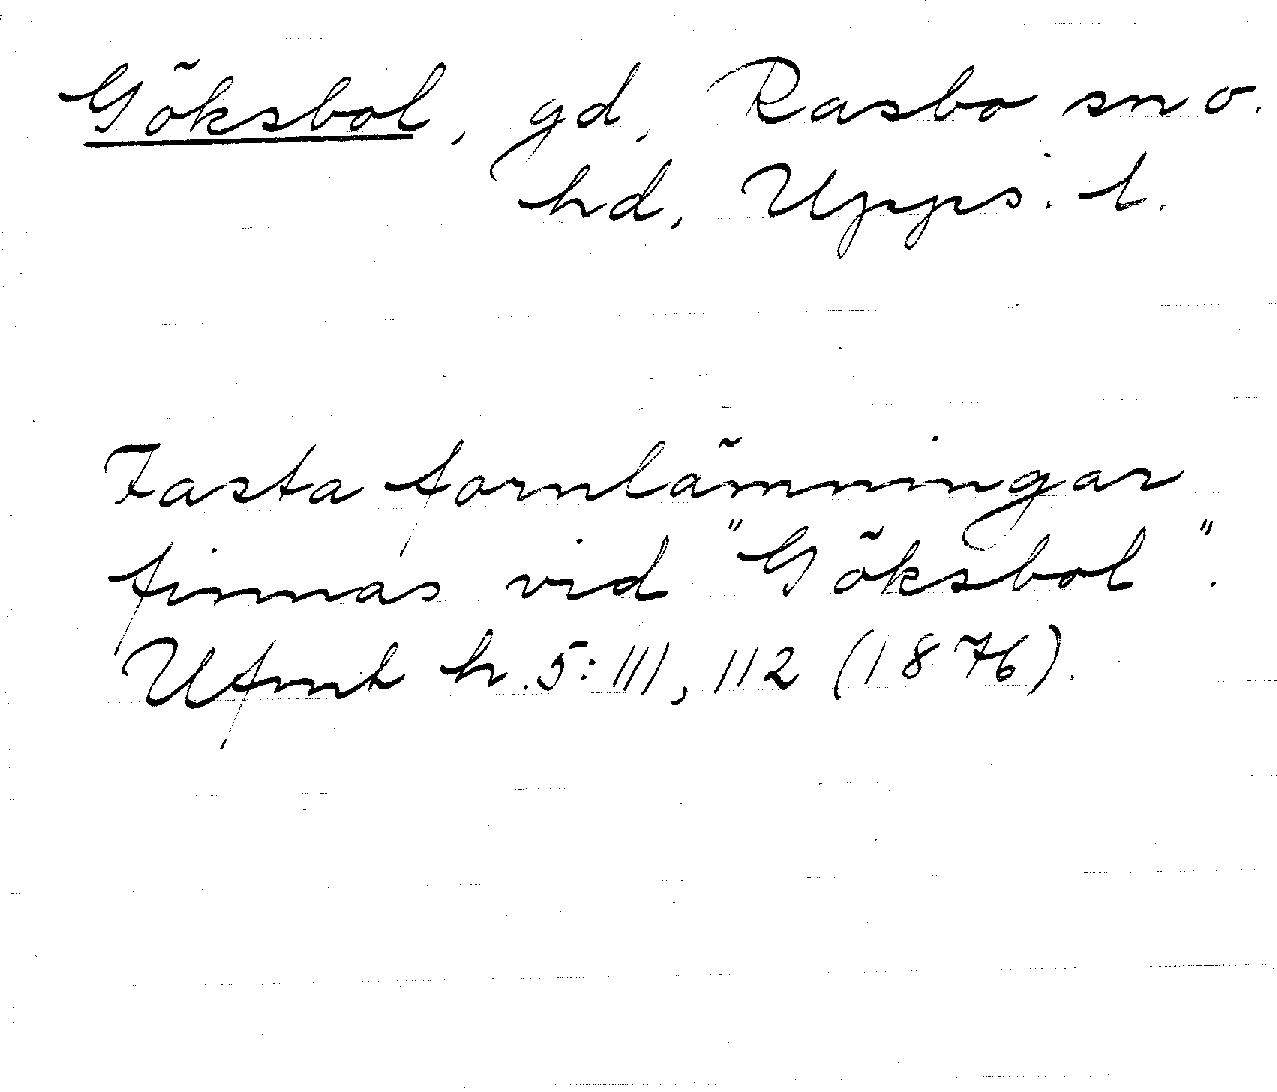 Göksbol, gd, Rasbo sn o.
hd, Upps. l.
Fasta fornlämningar
finnas vid "Göksbol".
Ufmt h. 5: III, 112 (1876).